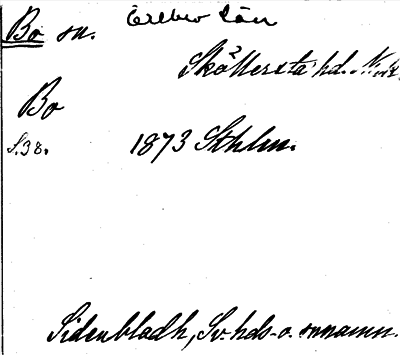 Bo sn. Örebro län
Sköllersta hd.
Bo
S.38. 1873 Sthlm.
Sidenbladh, Sv. hds- o. snnamn.